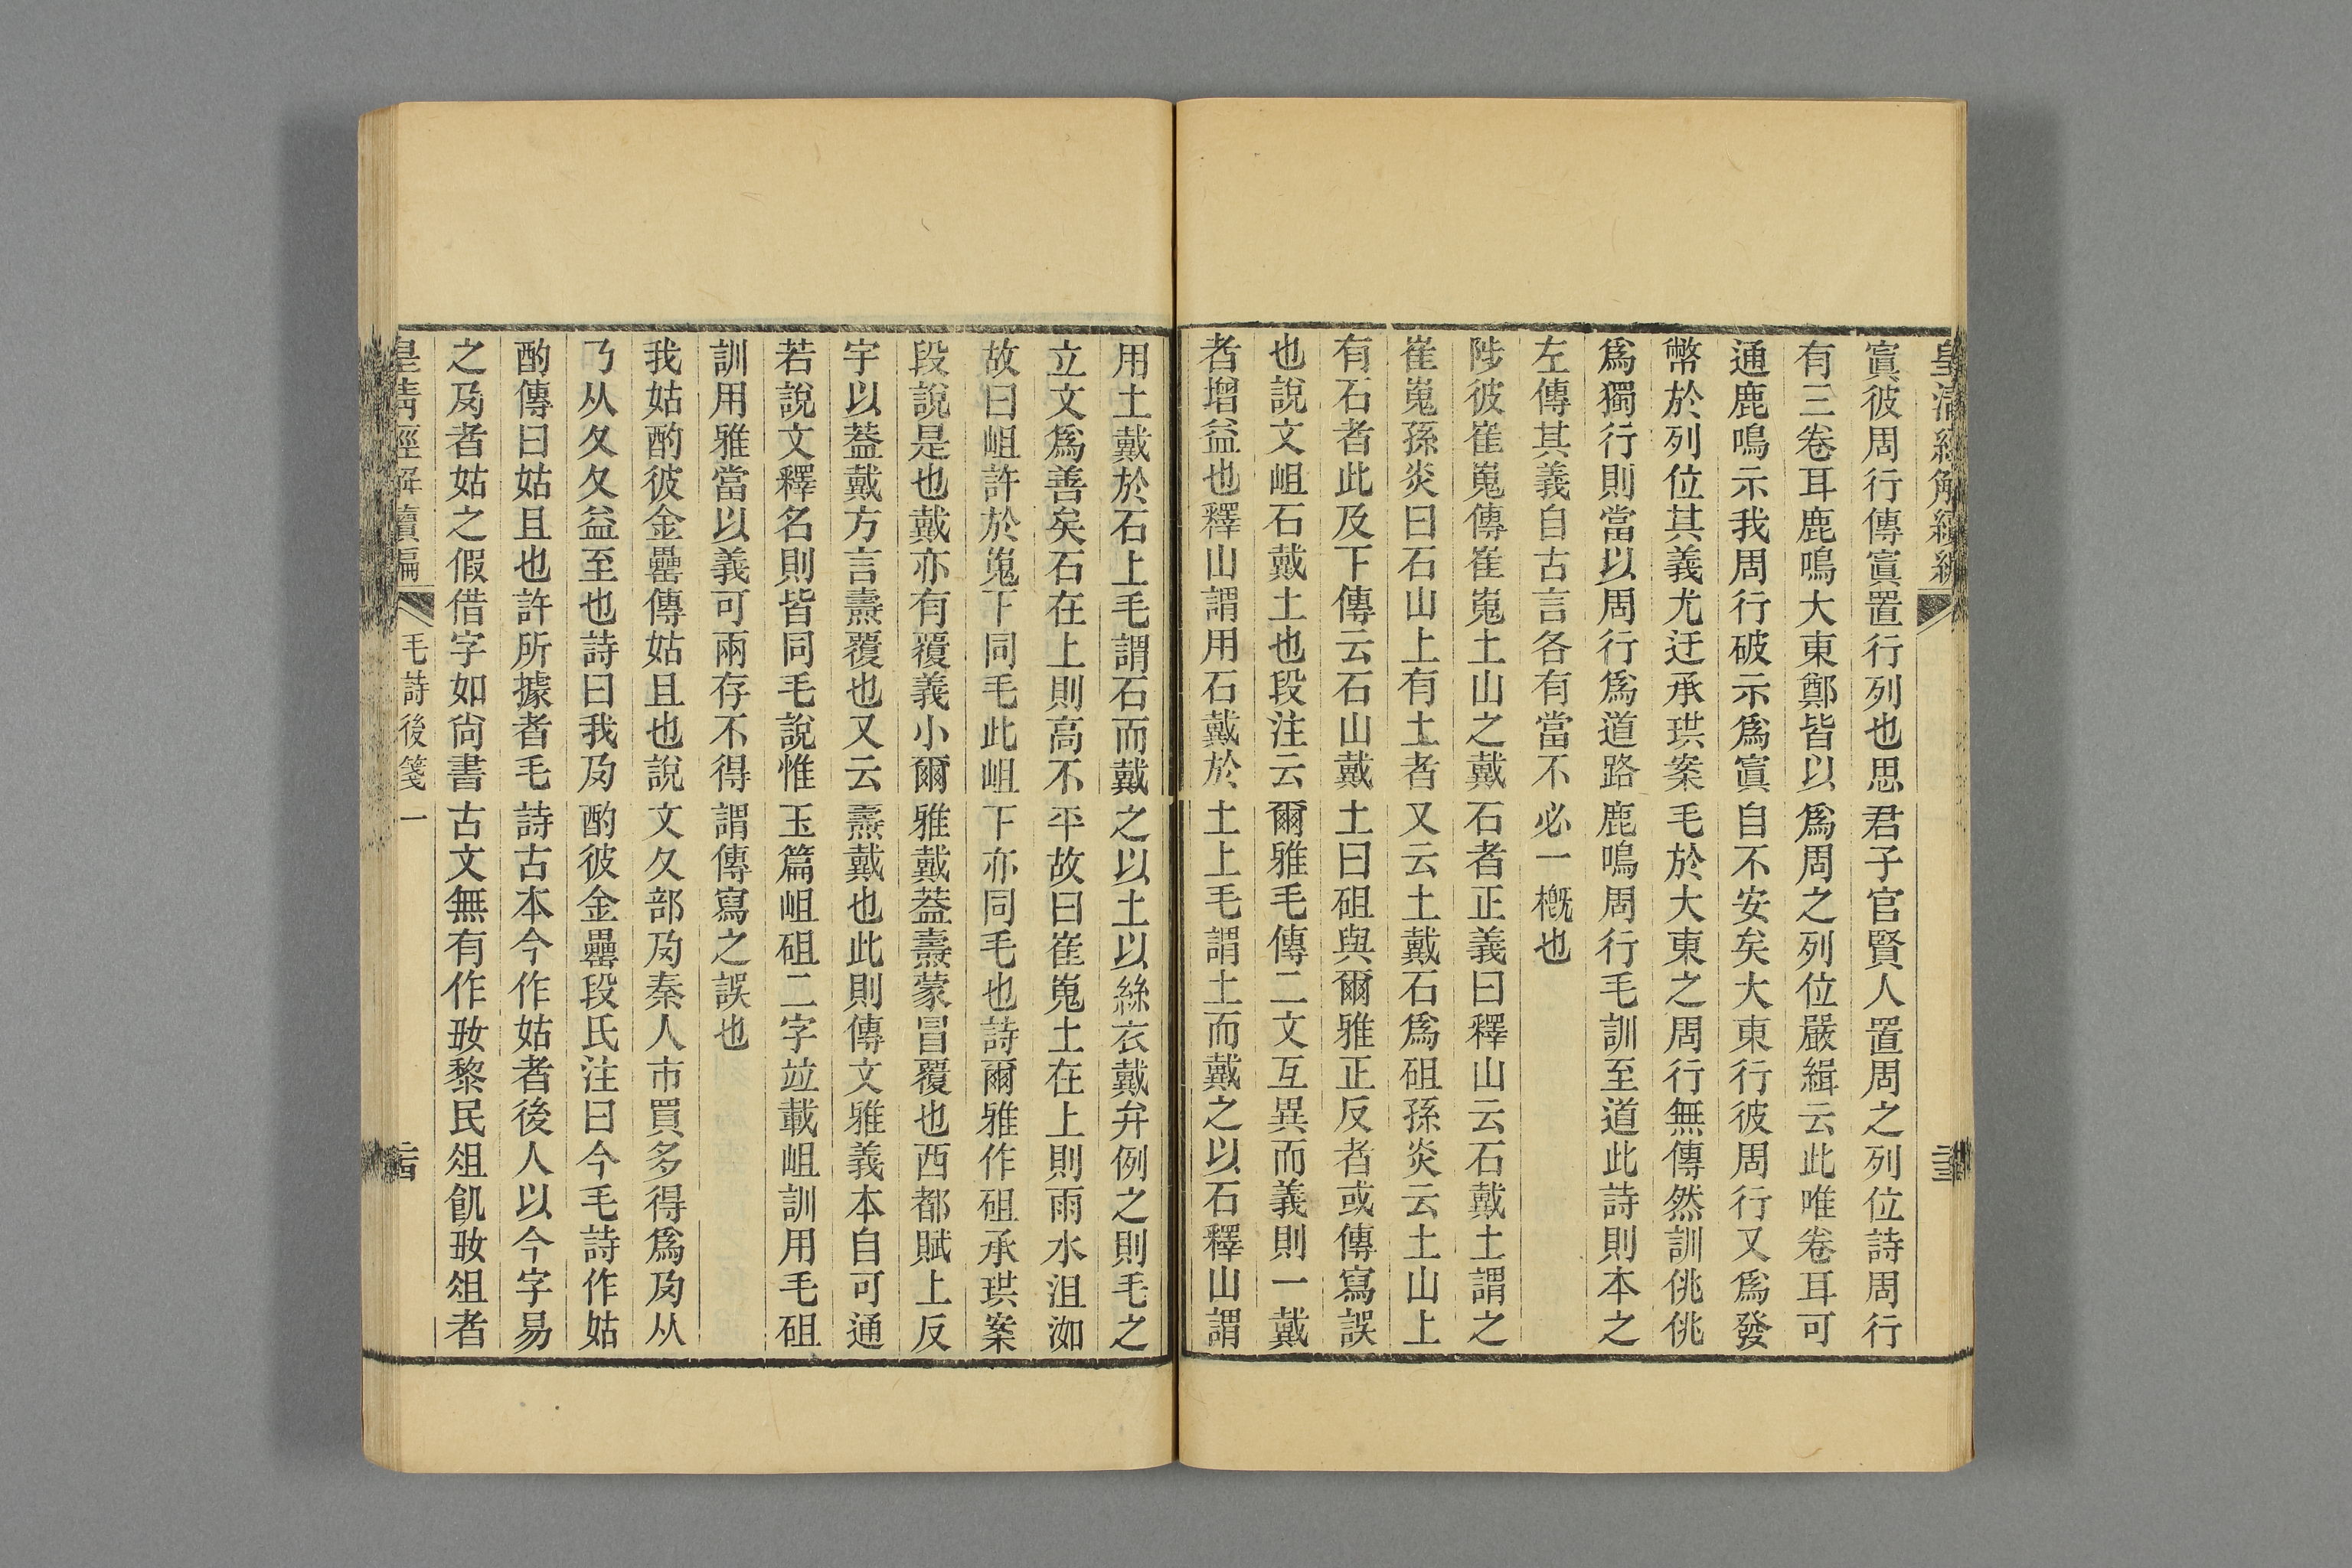 皇清經解續編
二十三
寘彼周行傳寘置行列也思君子官賢人置周之列位詩周行
有三卷耳鹿鳴大東鄭皆以爲周之列位嚴緝云此唯卷耳可
通鹿鳴示我周行破示爲寘自不安矣大東行彼周行又爲發
幣於列位其義尤迂承珙案毛於大東之周行無傳然訓佻佻
爲獨行則當以周行爲道路鹿鳴周行毛訓至道此詩則本之
左傳其義自古言各有當不必一概也
陟彼崔嵬傳崔嵬土山之戴石者正義曰釋山云石戴土謂之
崔嵬孫炎曰石山上有土者又云土戴石爲砠孫炎云土山上
有石者此及下傳云石山戴土曰砠與爾雅正反者或傳寫誤
也說文岨石戴土也段注云爾雅毛傳二文互異而義則一戴
者增益也釋山謂用石戴於土上毛謂土而戴之以石釋山謂
用土戴於石上毛謂石而戴之以土以絲衣戴弁例之則毛之
立文爲善矣石在上則高不平故曰崔嵬土在上則雨水沮洳
故曰岨許於嵬下同毛此岨下亦同毛也詩爾雅作砠承珙案
段說是也戴亦有覆義小爾雅戴蓋燾蒙冒覆也西都賦上反
宇以葢戴方言燾覆也又云燾戴也此則傳文雅義本自可通
若說文釋名則皆同毛說惟玉篇岨砠二字竝載岨訓用毛砠
訓用雅當以義可兩存不得謂傳寫之誤也
我姑酌彼金罍傳姑且也說文夂部夃秦人市買多得爲夃从
乃从夂夂益至也詩曰我夃酌彼金罍段氏注曰今毛詩作姑
酌傳曰姑且也許所據者毛詩古本今作姑者後人以今字易
之夃者姑之假借字如尙書古文無有作𢻱黎民俎飢𢻱俎者
皇清經解續編
毛詩後箋一
二十四